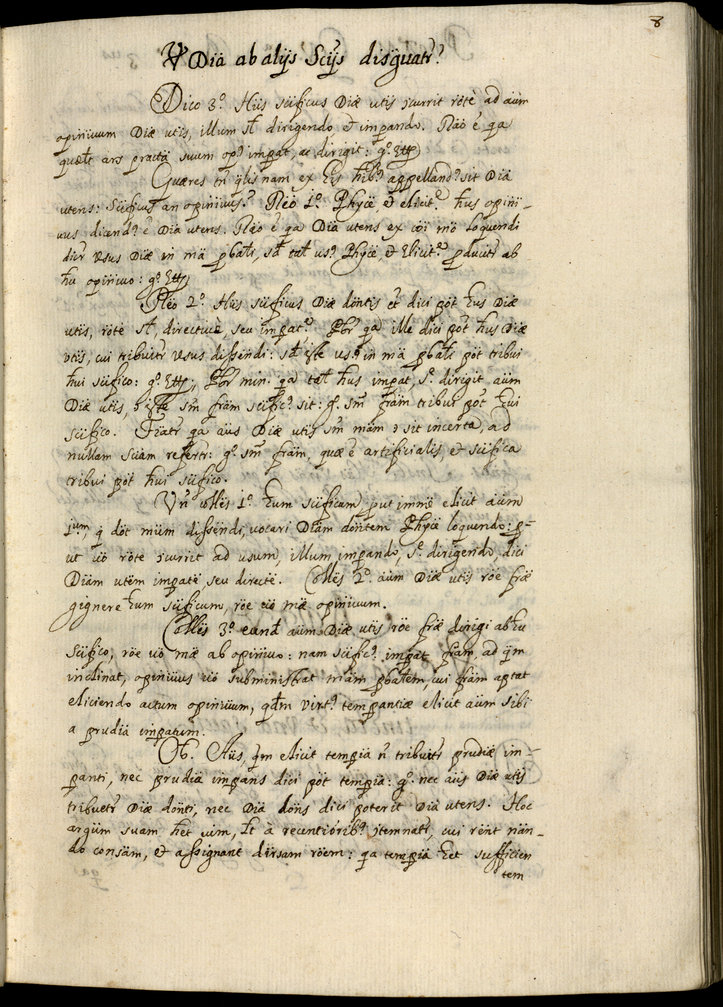 8
V Dia ab alijs Scijs disguatr?
Dico 3º. Hus sciificus Diæ utis ɔcurrit rõte ad aüm
opiniuum Diæ utis, illum st dirigendo, et impando. Rão ē qa
ars practa suum op9 impat, ac dirigit: gº. Ett9
Quæres tn qlisnam ex his hib9 appelland9 sit Dia
utens: Sciificus an opiniuus? Rẽo 1º. Physce et elicite hus opini-
uus dicend9 ē Dia utens. Rẽo ē qa Dia utens ex cõi mõ loquendi
dir usus Diæ in mã pbali, sd us9 Physce, et Elicite pducitr ab
hu opiniuo: gº. Ett9
Rẽo 2º. Hus sciificus Diæ dõntis et dici põt hus Diæ
utis, rõte st, directiue, seu impate. Pbr qa ille dici põt hus Diæ
utis, cui tribuitr usus dissendi: sd us9 in mã pbali põt tribui
hui sciifico: gº. Ett9; Pbr min. qa hus impat, s. dirigit aüm
Diæ utis, sm främ sciific9 sit: gº. sm främ tribui põt hui
sciifico. qa aüs Diæ utis sm mäm ɔ sit incerta, ad
nullam sciäm refertr: gº. sm främ, quæ ē artificialis, et sciifica
tribui põt hui sciifico.
Vn colles 1º. hum sciificum, put immẽ elicit aüm
1um, q dõt mũm dissendi, vocari Diäm dõntem Physce loquendo: p-
ut uõ rõte ɔcurrit ad usum, illum impando, s. dirigendo, dici
Diäm utem impatẽ, seu directẽ. Colles 2º. aüm Diæ utis rõe fræ
gignere hum sciificum, rõe uõ mæ opiniuum.
Colles 3º. eand aüm Diæ utis rõe fræ dirigi ab hu
sciifico, rõe uõ mæ ab opiniuo: nam sciific9 impat främ, ad qm
inclinat, opiniuus uõ subministrat mäm pbalem, cui främ aptat
eliciendo actum opiniuum, qdm virt9 tempantiæ elicit aüm sibi
a prudia impatum.
Ob. Aüs, qm elicit tempia ñ tribuitr prudiæ im-
panti, nec prudia impans dici põt tempia: gº. nec aüs Diæ utis
tribuetr Diæ dõnti, nec Dia dõns dici poterit Dia utens. Hoc
argüm suam het uim, et à recentiõrib9 ɔtemnatr, cui rẽnt nän-
do consäm, et assignant diuersam rõem: qa tempia het sufficien
tem